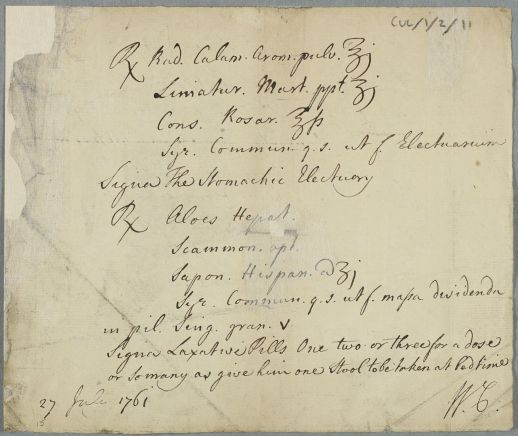 CUL/1/2/11
℞ Rad. Calam. Arom. pulv. ʒj
Limatur. Mart. ppt. ʒj
Cons. Rosar. ℥ß
Syr. Commun. q.s. ut f. Electuarium
Signa The Stomachic Electuary
℞ Aloes Hepat.
Scammon. opt.
Sapon. Hispan. a ʒj
Syr. Commun. q.s. ut f. massa dividenda
in pil. Sing. gran. v
Signa Laxative Pills One two or three for a dose
or so many as give him one Stool to be taken at bedtime
27 July 1761
W. C.